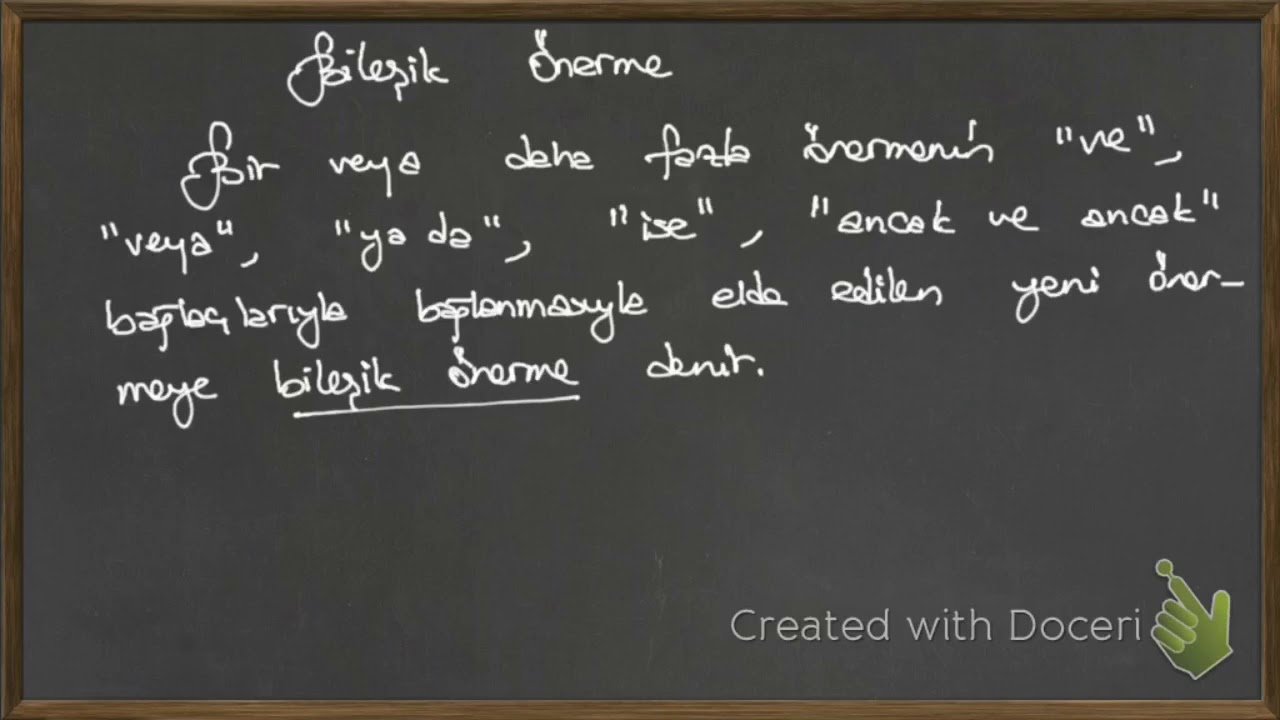 Bileşik önerme
Bir veya daha fazla önermenin "ve",
"veya", "ya da", "ise", "ancak ve ancak"
bağlaçlarıyla bağlanmasıyle elde edilen yeni öner-
meye bileşik önerme denir.
Created with Doceri